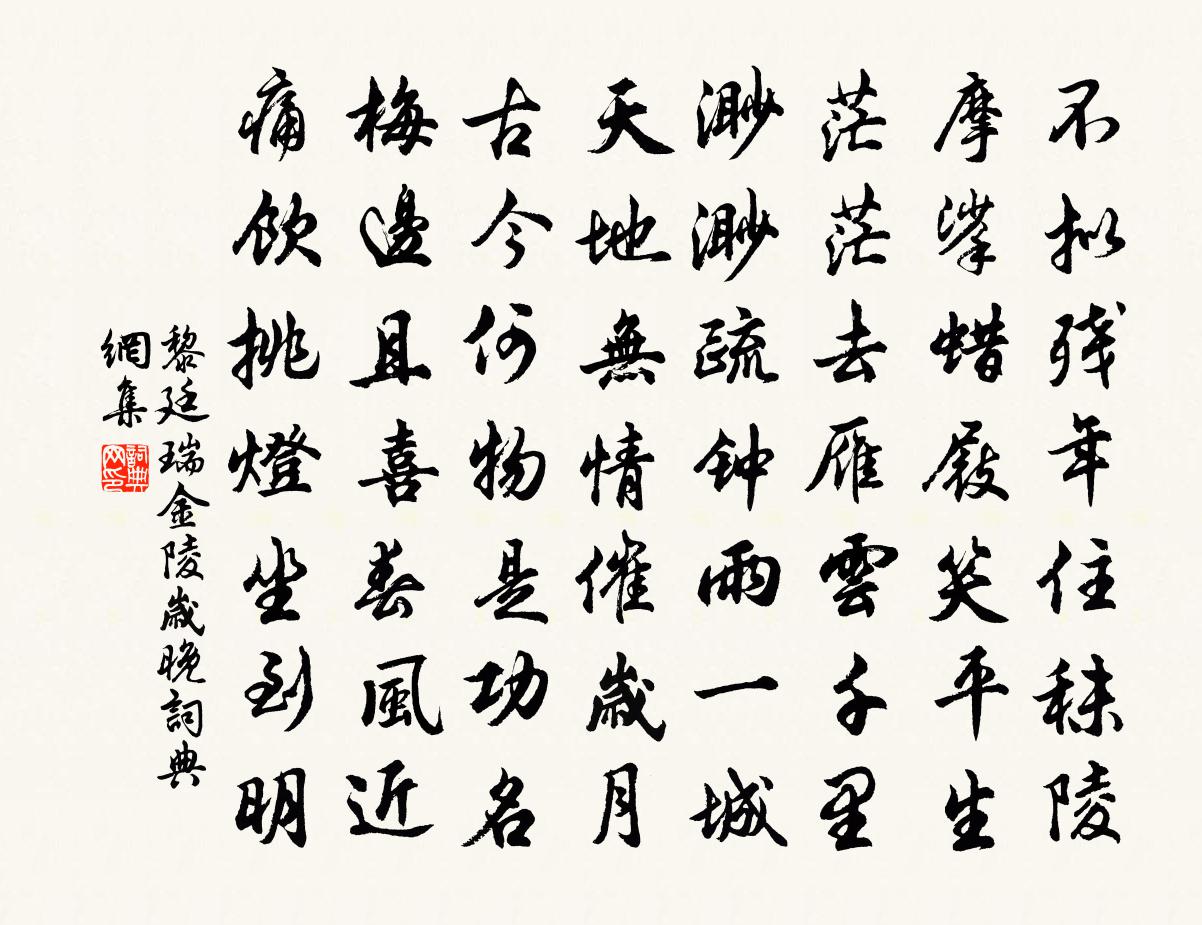 不拟残年住秣陵
摩挲蜡屐笑平生
茫茫去雁雲千里
渺渺疏钟雨一城
天地無情催歲月
古今何物是功名
梅邊且喜春風近
痛飲挑燈坐到明
黎廷瑞金陵歲晚詞典
網集
詞典
网印